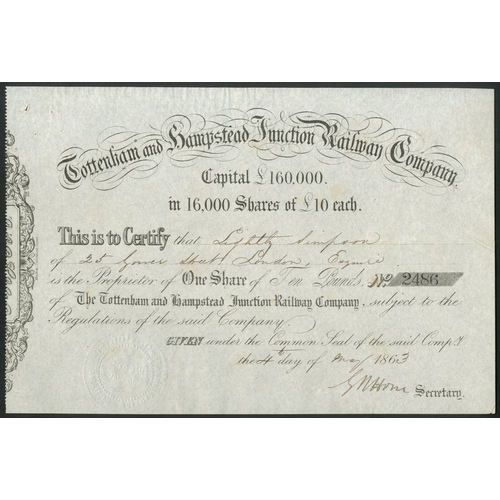 Tottenham and Hampstead Junction Railway Company.
Capital £160,000.
in 16,000 Shares of £10 each.
This is to Certify that Lightly Simpson
of 25 Gower Street London, Esquire
is the Proprietor of One Share of Ten Pounds, No. 2486
of The Tottenham and Hampstead Junction Railway Company, subject to the
Regulations of the said Company.
GIVEN under the Common Seal of the said Compy.
the 4 day of May 1863
Secretary.